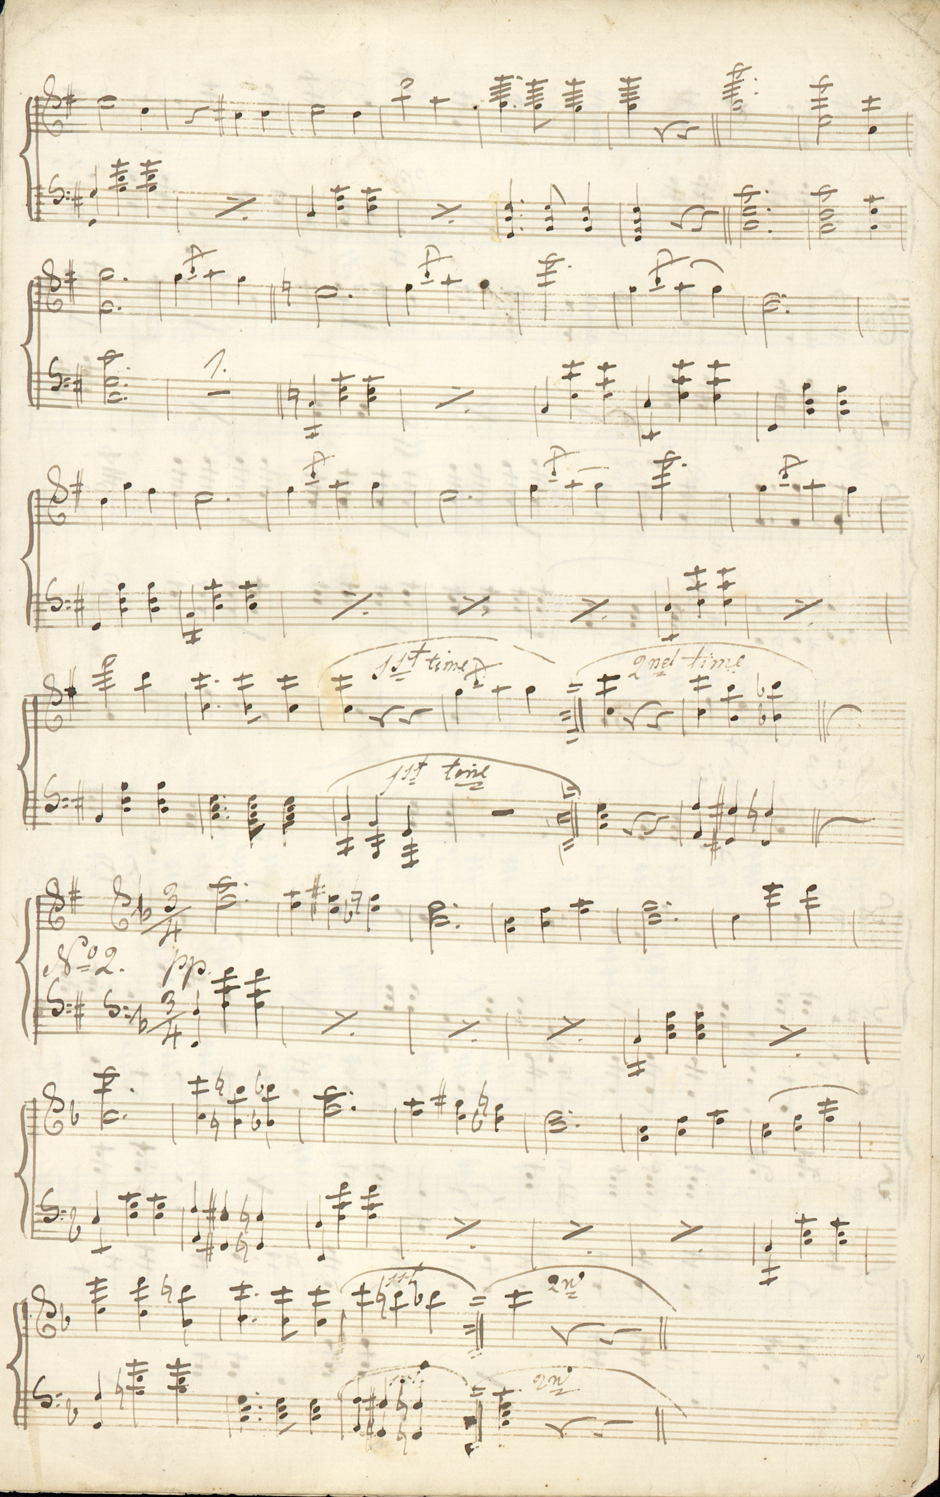 1.
1st time 2nd time
1st time
3/4
No 2. pp.
3/4
1st 2nd
2nd